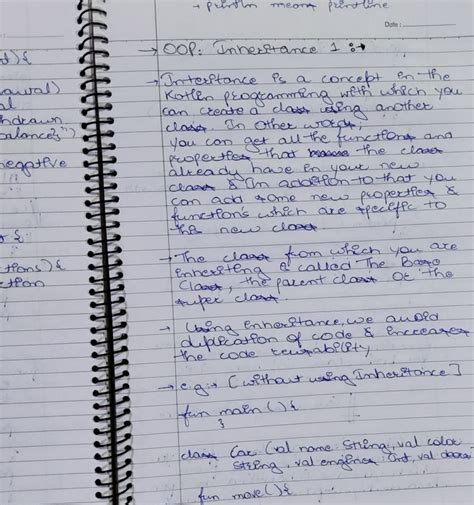 → println means printline
Date :
d) {
awal)
al
hdrawn
balance2")
negative
r {
tions) {
ction
→ OOP: Inheritance 1 :→
→ Interitance is a concept in the
Kotlin programming with which you
can create a class using another
class. In other words,
you can get all the functions and
properties that the class
already have in your new
class & In addition to that you
can add some new properties &
functions which are specific to
this new class.
→ The class from which you are
inheriting is called The Base
Class, the parent class or the
super class.
→ Using inheritance, we avoid
duplication of code & increases
the code reusability
→ e.g :→ [without using Inheritance]
fun main () {
}
class Car (val name: String, val color:
String, val engines: Int, val doors
fun move() {